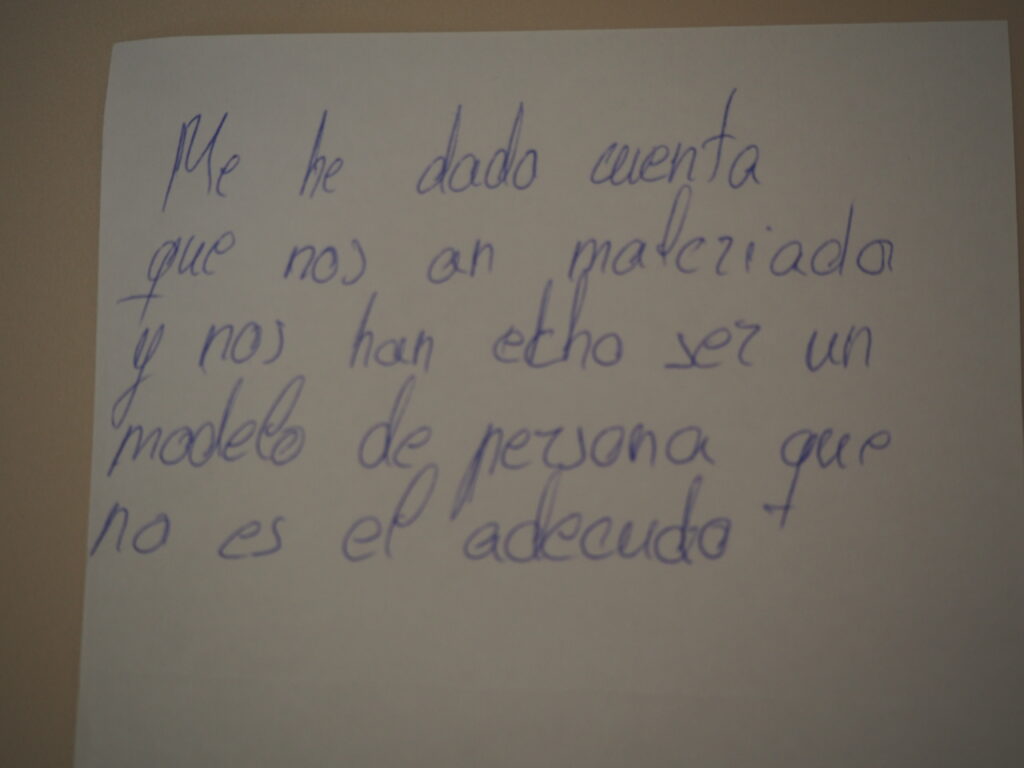 Me he dado cuenta
que nos an malcriado
y nos han echo ser un
modelo de persona que
no es el adecudo